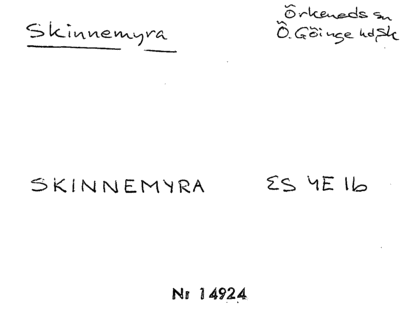 Skinnemyra
Örkeneds sn
Ö. Göinge hd, Sk
SKINNEMYRA ES 4E 1b
Nr 14924